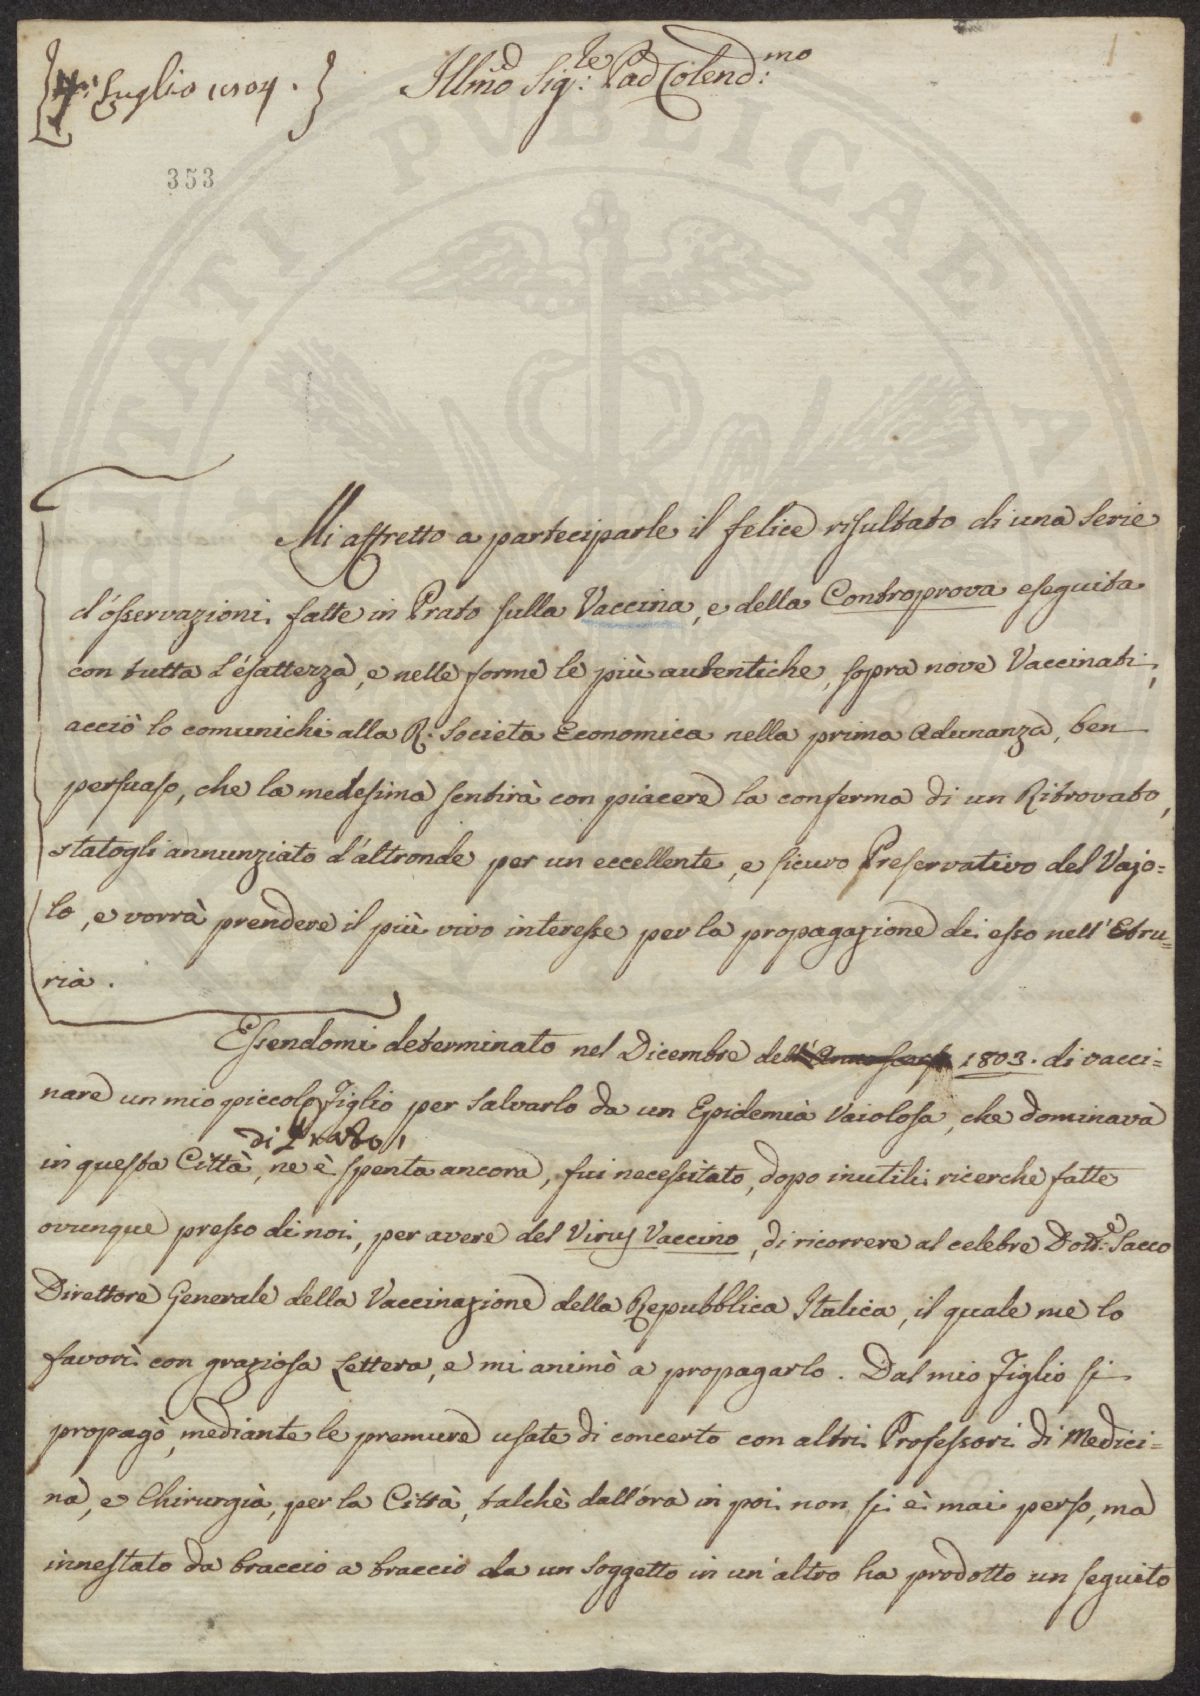 Luglio 1804.
Illmo Sig:le Pad Colend:mo
353
Mi affretto a parteciparle il felice risultato di una serie
d'osservazioni fatte in Prato sulla Vaccina, e della Controprova eseguita
con tutta l'esattezza, e nelle forme le più autentiche, sopra nove Vaccinati,
acciò lo comunichi alla R. Societa Economica nella prima Adunanza, ben
persuaso, che la medesima sentirà con piacere la conferma di un Ritrovato,
statogli annunziato d'altronde per un eccellente, e sicuro Preservativo del Vajo=
lo, e vorrà prendere il più vivo interesse per la propagazione di esso nell'Etru=
ria.
Essendomi determinato nel Dicembre dell' Anno scorso 1803. di vacci=
nare un mio piccolo Figlio per salvarlo da un Epidemia Vaiolosa, che dominava
di Prato,
in questa Città, ne è spenta ancora, fui necessitato, dopo inutili ricerche fatte
ovunque presso di noi, per avere del Virus Vaccino, di ricorrere al celebre Dott:e Sacco
Direttore Generale della Vaccinazione della Repubblica Italica, il quale me lo
favorì con graziosa Lettera, e mi animò a propagarlo. Dal mio Figlio si
propagò, mediante le premure usate di concerto con altri Professori di Medici=
na, e Chirurgià, per la Città, talchè dall'ora in poi non si è mai perso, ma
innestato da braccio a braccio da un soggetto in un'altro ha prodotto un seguito